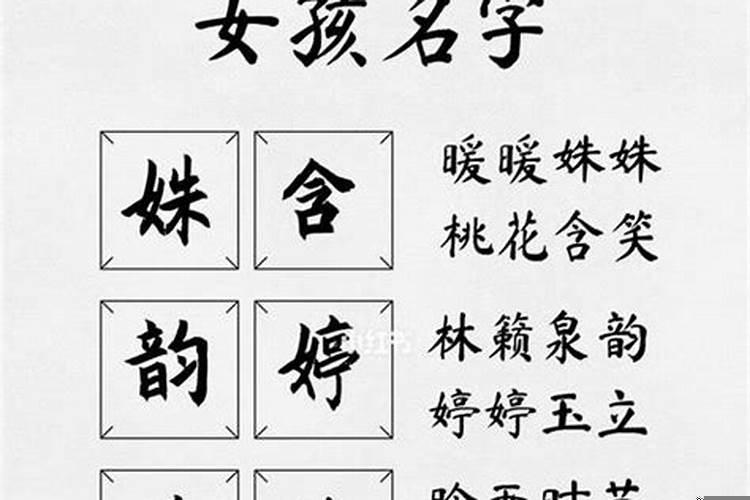 女孩名字
姝含
暖暖姝姝
桃花含笑
韵婷
林籁泉韵
婷婷玉立